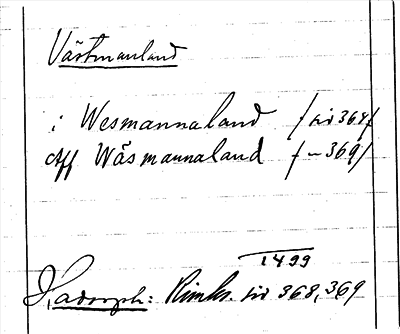 Västmanland
i Wesmannaland /sid 368/
Aff Wäsmannaland / – 369/
1499
Hadorph: Rimkr. sid 368, 369